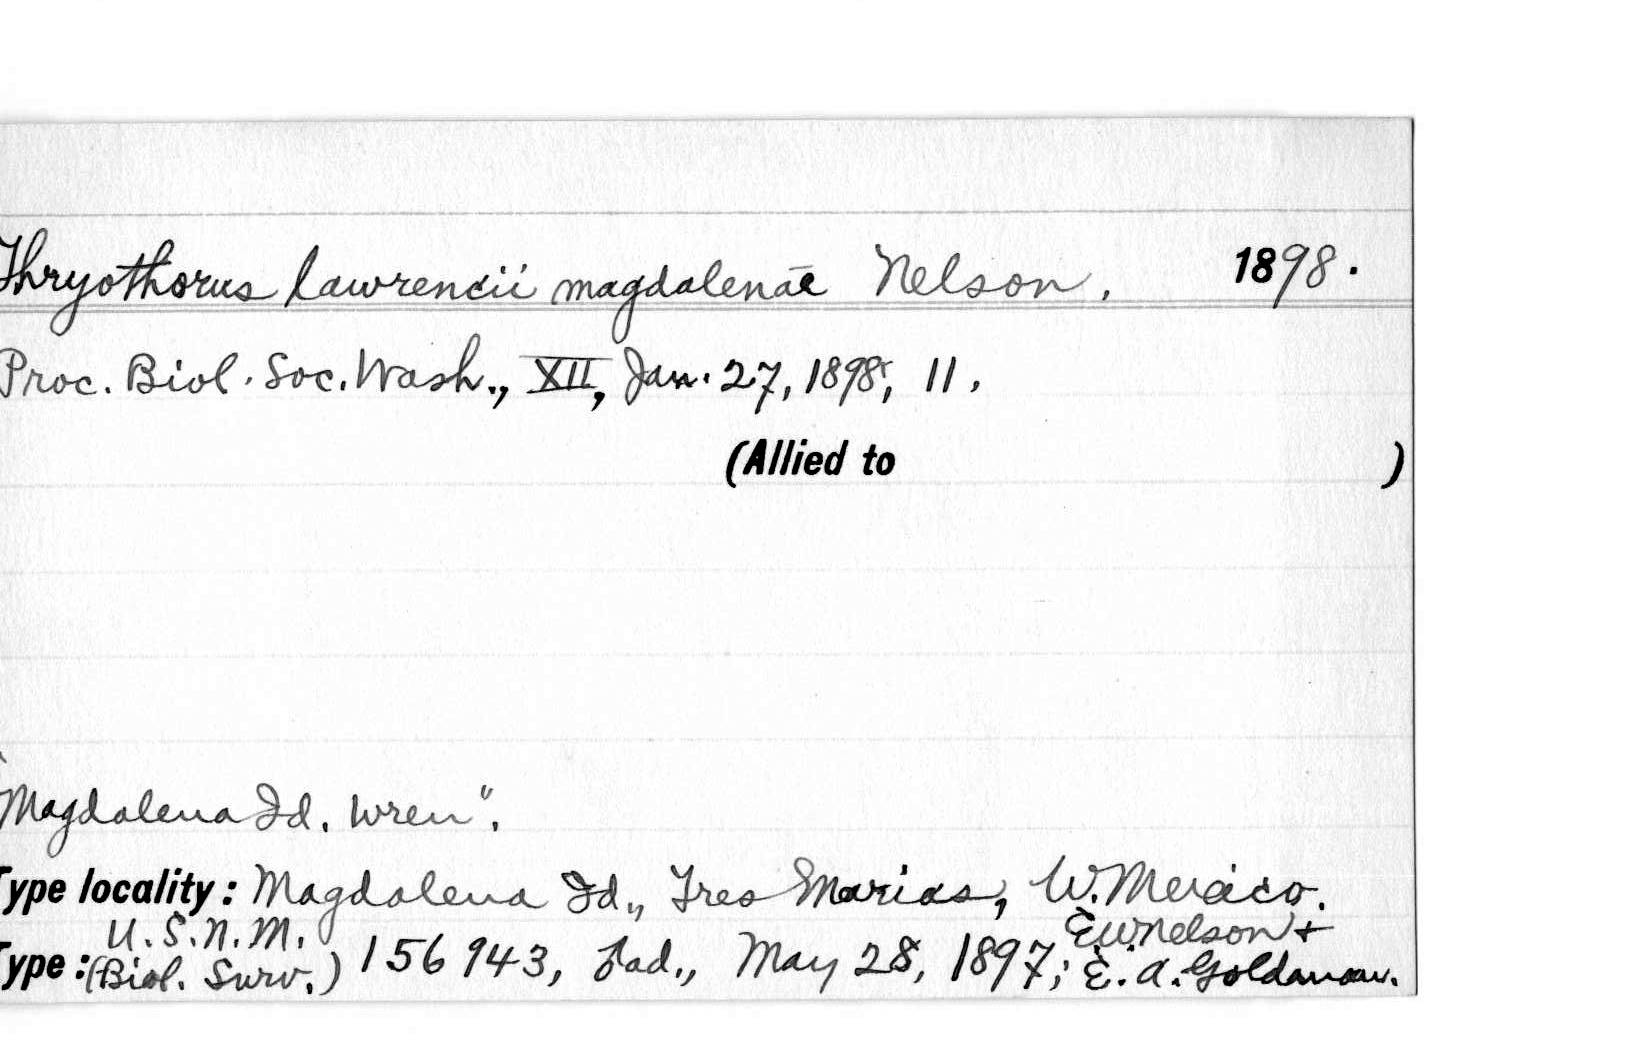 Thryothorus lawrencii magdalenae Nelson, 1898.
Proc. Biol. Soc. Wash., XII, Jan. 27, 1898, 11.
(Allied to )
"Magdalena Id. Wren".
Type locality: Magdalena Id., Tres Marias, W. Mexico.
U.S.N.M. E W Nelson +
Type: (Biol. Surv.) 156943, ad., May 28, 1897; E. A. Goldman.